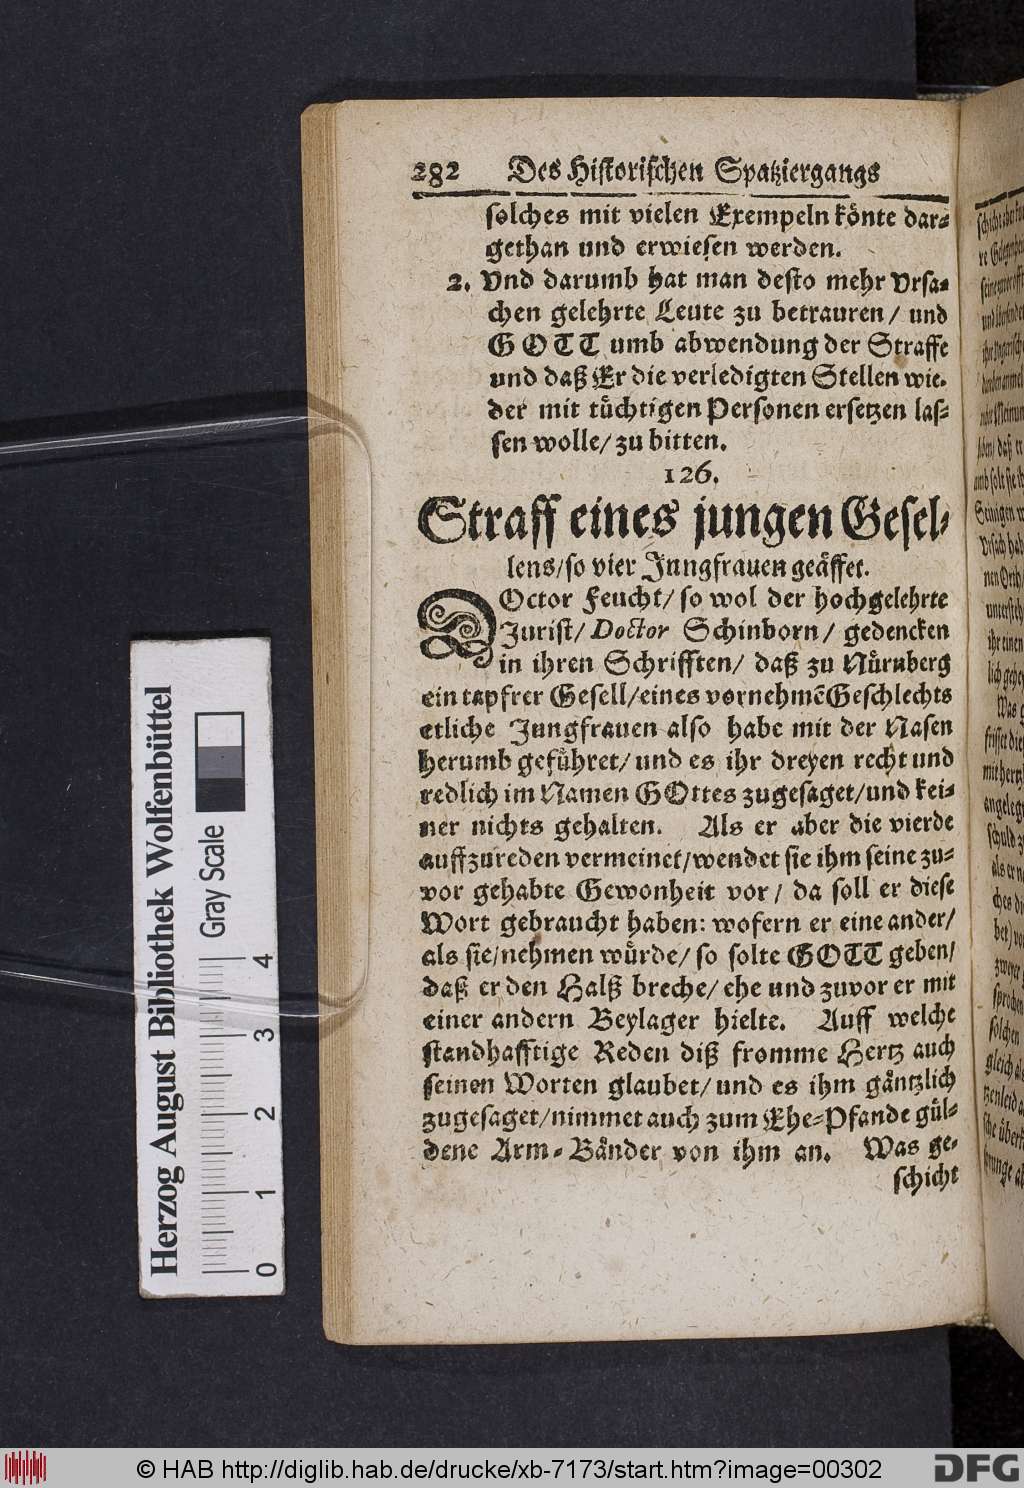 282 Des Historischen Spatziergangs
solches mit vielen Exempeln könte dar=
gethan und erwiesen werden.
2. Vnd darumb hat man desto mehr Vrsa=
chen gelehrte Leute zu betrauren/ und
GOTT umb abwendung der Straffe
und daß Er die verledigten Stellen wie.
der mit tüchtigen Personen ersetzen las=
sen wolle/ zu bitten.
126.
Straff eines jungen Gesel=
lens/so vier Jungfrauen geäffet.
DOctor Feucht/ so wol der hochgelehrte
Jurist/ Doctor Schinborn/ gedencken
in ihren Schrifften/ daß zu Nürnberg
ein tapfrer Gesell/eines vornehmē Geschlechts
etliche Jungfrauen also habe mit der Nasen
herumb geführet/ und es ihr dreyen recht und
redlich im Namen GOttes zugesaget/und kei=
ner nichts gehalten. Als er aber die vierde
auffzureden vermeinet/wendet sie ihm seine zu=
vor gehabte Gewonheit vor/ da soll er diese
Wort gebraucht haben: wofern er eine ander/
als sie/nehmen würde/ so solte GOTT geben/
daß er den Halß breche/ ehe und zuvor er mit
einer andern Beylager hielte. Auff welche
standhafftige Reden diß fromme Hertz auch
seinen Worten glaubet/ und es ihm gäntzlich
zugesaget/nimmet auch zum Ehe=Pfande gül=
dene Arm=Bänder von ihm an. Was ge=
schicht
Herzog August Bibliothek Wolfenbüttel
Gray Scale
0 1 2 3 4
© HAB http://diglib.hab.de/drucke/xb-7173/start.htm?image=00302
DFG